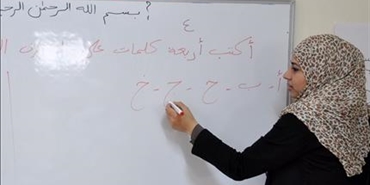 بسم الله الرحمن الرحيم
٤
أكتب أربعة كلمات
أ - ب - ج - ح - خ